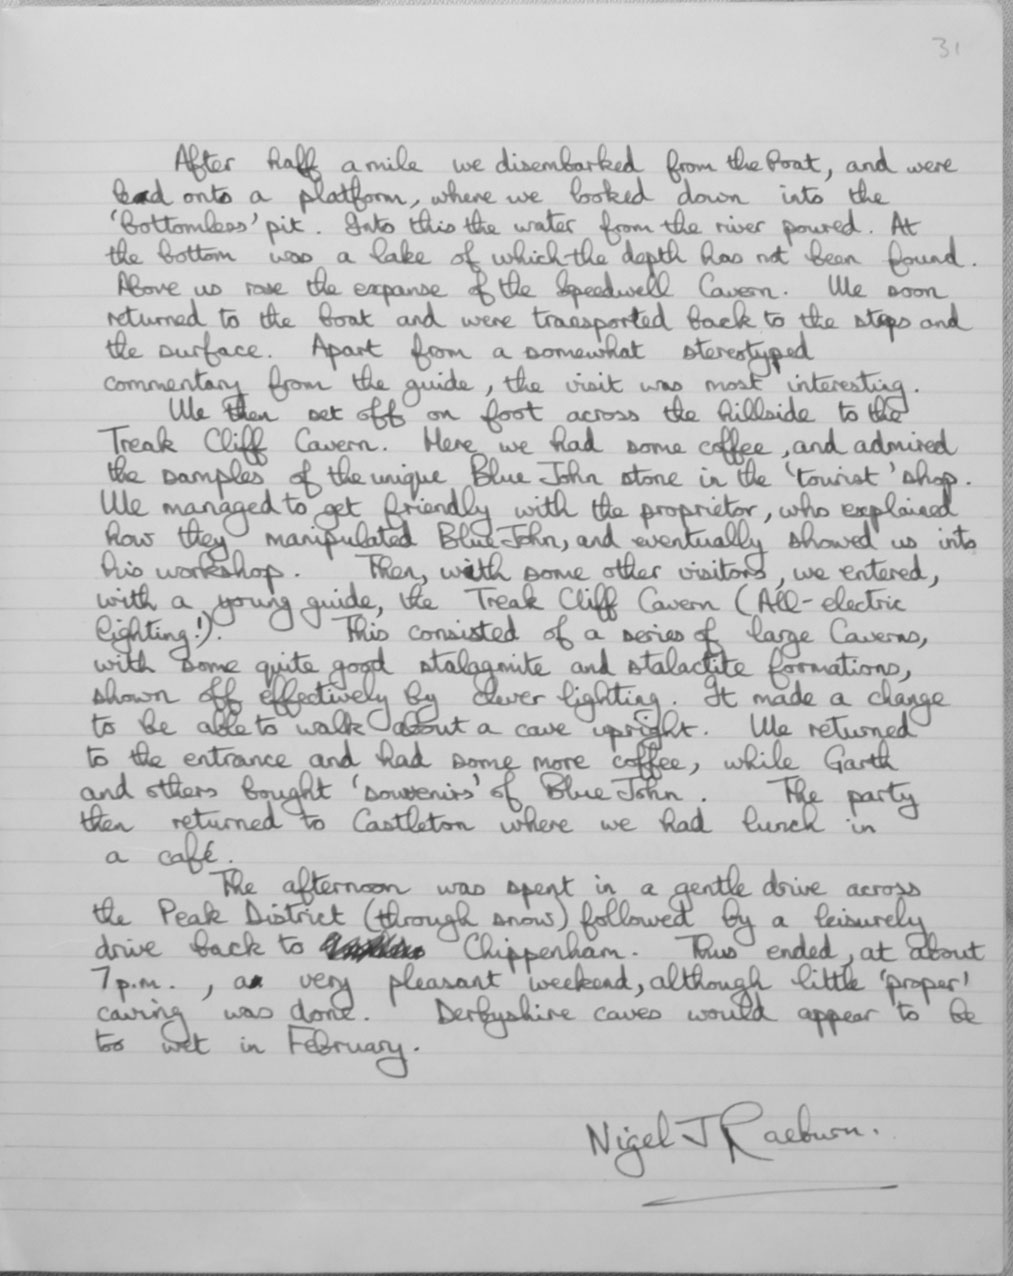 31
After half a mile we disembarked from the boat, and were
lead onto a platform, where we looked down into the
'bottomless' pit. Into this the water from the river poured. At
the bottom was a lake of which the depth has not been found.
Above us rose the expanse of the Speedwell Cavern. We soon
returned to the boat and were transported back to the steps and
the surface. Apart from a somewhat stereotyped
commentary from the guide, the visit was most interesting.
We then set off on foot across the hillside to the
Treak Cliff Cavern. Here we had some coffee, and admired
the samples of the unique Blue John stone in the 'tourist' shop.
We managed to get friendly with the proprietor, who explained
how they manipulated Blue John, and eventually showed us into
his workshop. Then, with some other visitors, we entered,
with a young guide, the Treak Cliff Cavern (All-electric
lighting!). This consisted of a series of large Caverns,
with some quite good stalagmite and stalactite formations,
shown off effectively by clever lighting. It made a change
to be able to walk about a cave upright. We returned
to the entrance and had some more coffee, while Garth
and others bought 'souvenirs' of Blue John. The party
then returned to Castleton where we had lunch in
a café.
The afternoon was spent in a gentle drive across
the Peak District (through snow) followed by a leisurely
drive back to Chippenham. Thus ended, at about
7p.m., a very pleasant weekend, although little 'proper'
caving was done. Derbyshire caves would appear to be
too wet in February.
Nigel J Raeburn.